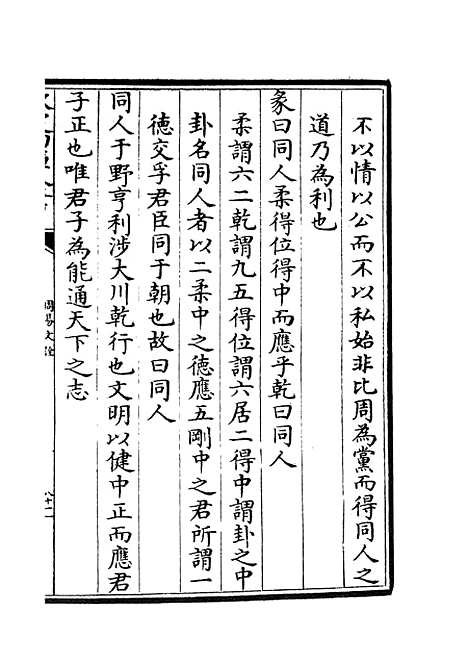 不以情以公而不以私始非比周為黨而得同人之
道乃為利也
彖曰同人柔得位得中而應乎乾曰同人
柔謂六二乾謂九五得位謂六居二得中謂卦之中
卦名同人者以二柔中之德應五剛中之君所謂一
德交孚君臣同于朝也故曰同人
同人于野亨利涉大川乾行也文明以健中正而應君
子正也唯君子為能通天下之志
周易文詮